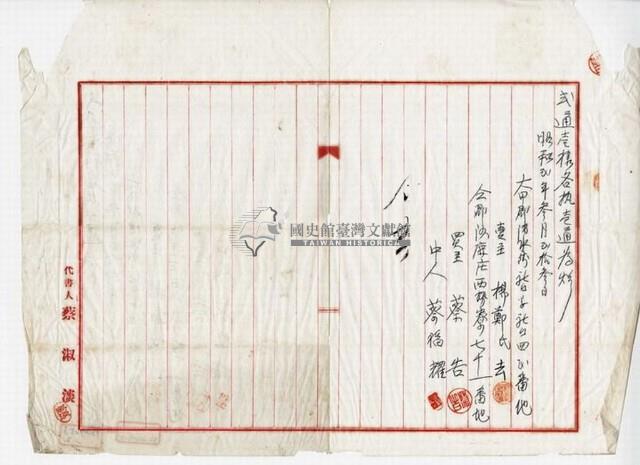 弍通壱樣各執壱通為炤
昭和弍年参月弍拾参日
大甲郡清水街社口字社口四弍番地
賣主 楊鄭氏去
仝郡沙鹿庄西勢寮七十一番地
買主 蔡告
中人 蔡福耀
代書人 蔡淑淡
國史館臺灣文獻館
TAIWAN HISTORICA